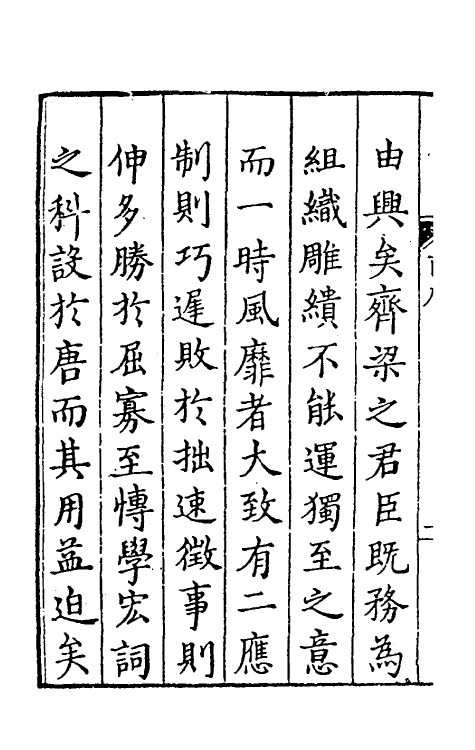 由興矣齊梁之君臣既務為
組織雕繢不能運獨至之意
而一時風靡者大致有二應
制則巧遲敗於拙速徵事則
伸多勝於屈寡至博學宏詞
之科設於唐而其用益迫矣